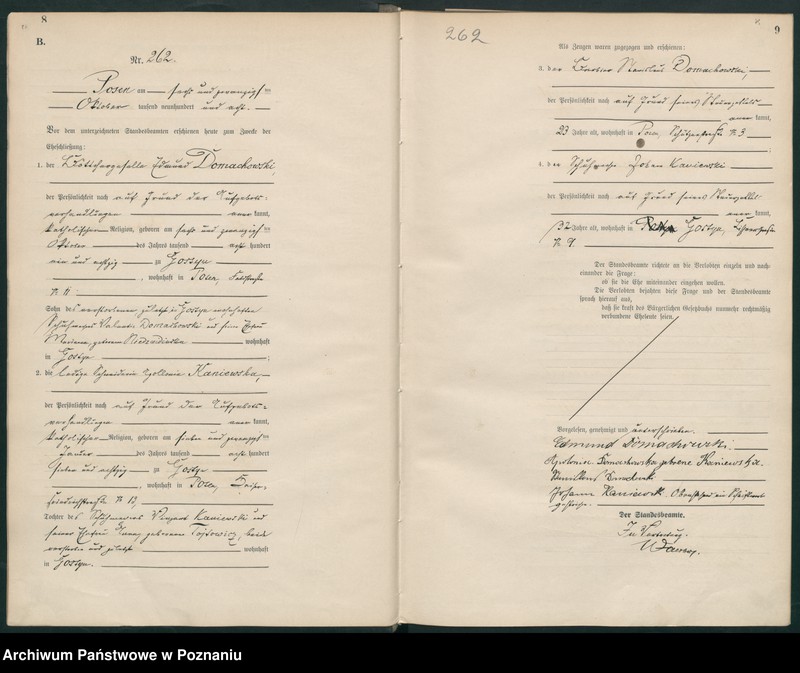 8
B.
Nr. 262.
Posen am sechs und zwanzigsten
Oktober tausend neunhundert und acht.
Vor dem unterzeichneten Standesbeamten erschienen heute zum Zwecke der
Eheschließung:
1. der Böttchergeselle Edmund Domachowski,
der Persönlichkeit nach auf Grund der Aufgebots-
verhandlungen kannt,
katholischer Religion, geboren am sechs und zwanzigsten
Oktober des Jahres tausend acht hundert
ein und achtzig zu Gostyn
, wohnhaft in Posen,
Nr. 11
Sohn des verstorbenen, zuletzt in Gostyn wohnhaften
Domachowski und seiner Ehefrau
Marianna, geborenen wohnhaft
in Gostyn ;
2. die ledige Schneiderin Apollonia Kaniewska,
der Persönlichkeit nach auf Grund der Aufgebots-
verhandlungen kannt,
katholischer Religion, geboren am sieben und zwanzigsten
Januar des Jahres tausend acht hundert
sieben und achtzig zu Gostyn
, wohnhaft in Posen,
Nr. 13,
Tochter des Schuhmachers Vinzent Kaniewski und
seiner Ehefrau geborenen beide
verstorben und zuletzt wohnhaft
in Gostyn.
262
9
Als Zeugen waren zugezogen und erschienen:
3. der Stanislaus Domachowski,
der Persönlichkeit nach auf Grund seines Steuerzettels
kannt,
23 Jahre alt, wohnhaft in Posen, Schützenstraße Nr. 3
;
4. der Schuhmacher Johann Kaniewski
der Persönlichkeit nach auf Grund seines Steuerzettel
kannt,
32 Jahre alt, wohnhaft in Gostyn,
Nr. 9.
Der Standesbeamte richtete an die Verlobten einzeln und nach-
einander die Frage:
ob sie die Ehe miteinander eingehen wollen.
Die Verlobten bejahten diese Frage und der Standesbeamte
sprach hierauf aus,
daß sie kraft des Bürgerlichen Gesetzbuchs nunmehr rechtmäßig
verbundene Eheleute seien.
Vorgelesen, genehmigt und unterschrieben.
Edmund Domachowski.
Apolonia Domachowska geborene Kaniewska.
Johann Kaniewski.
Der Standesbeamte.
In Vertretung.
Archiwum Państwowe w Poznaniu